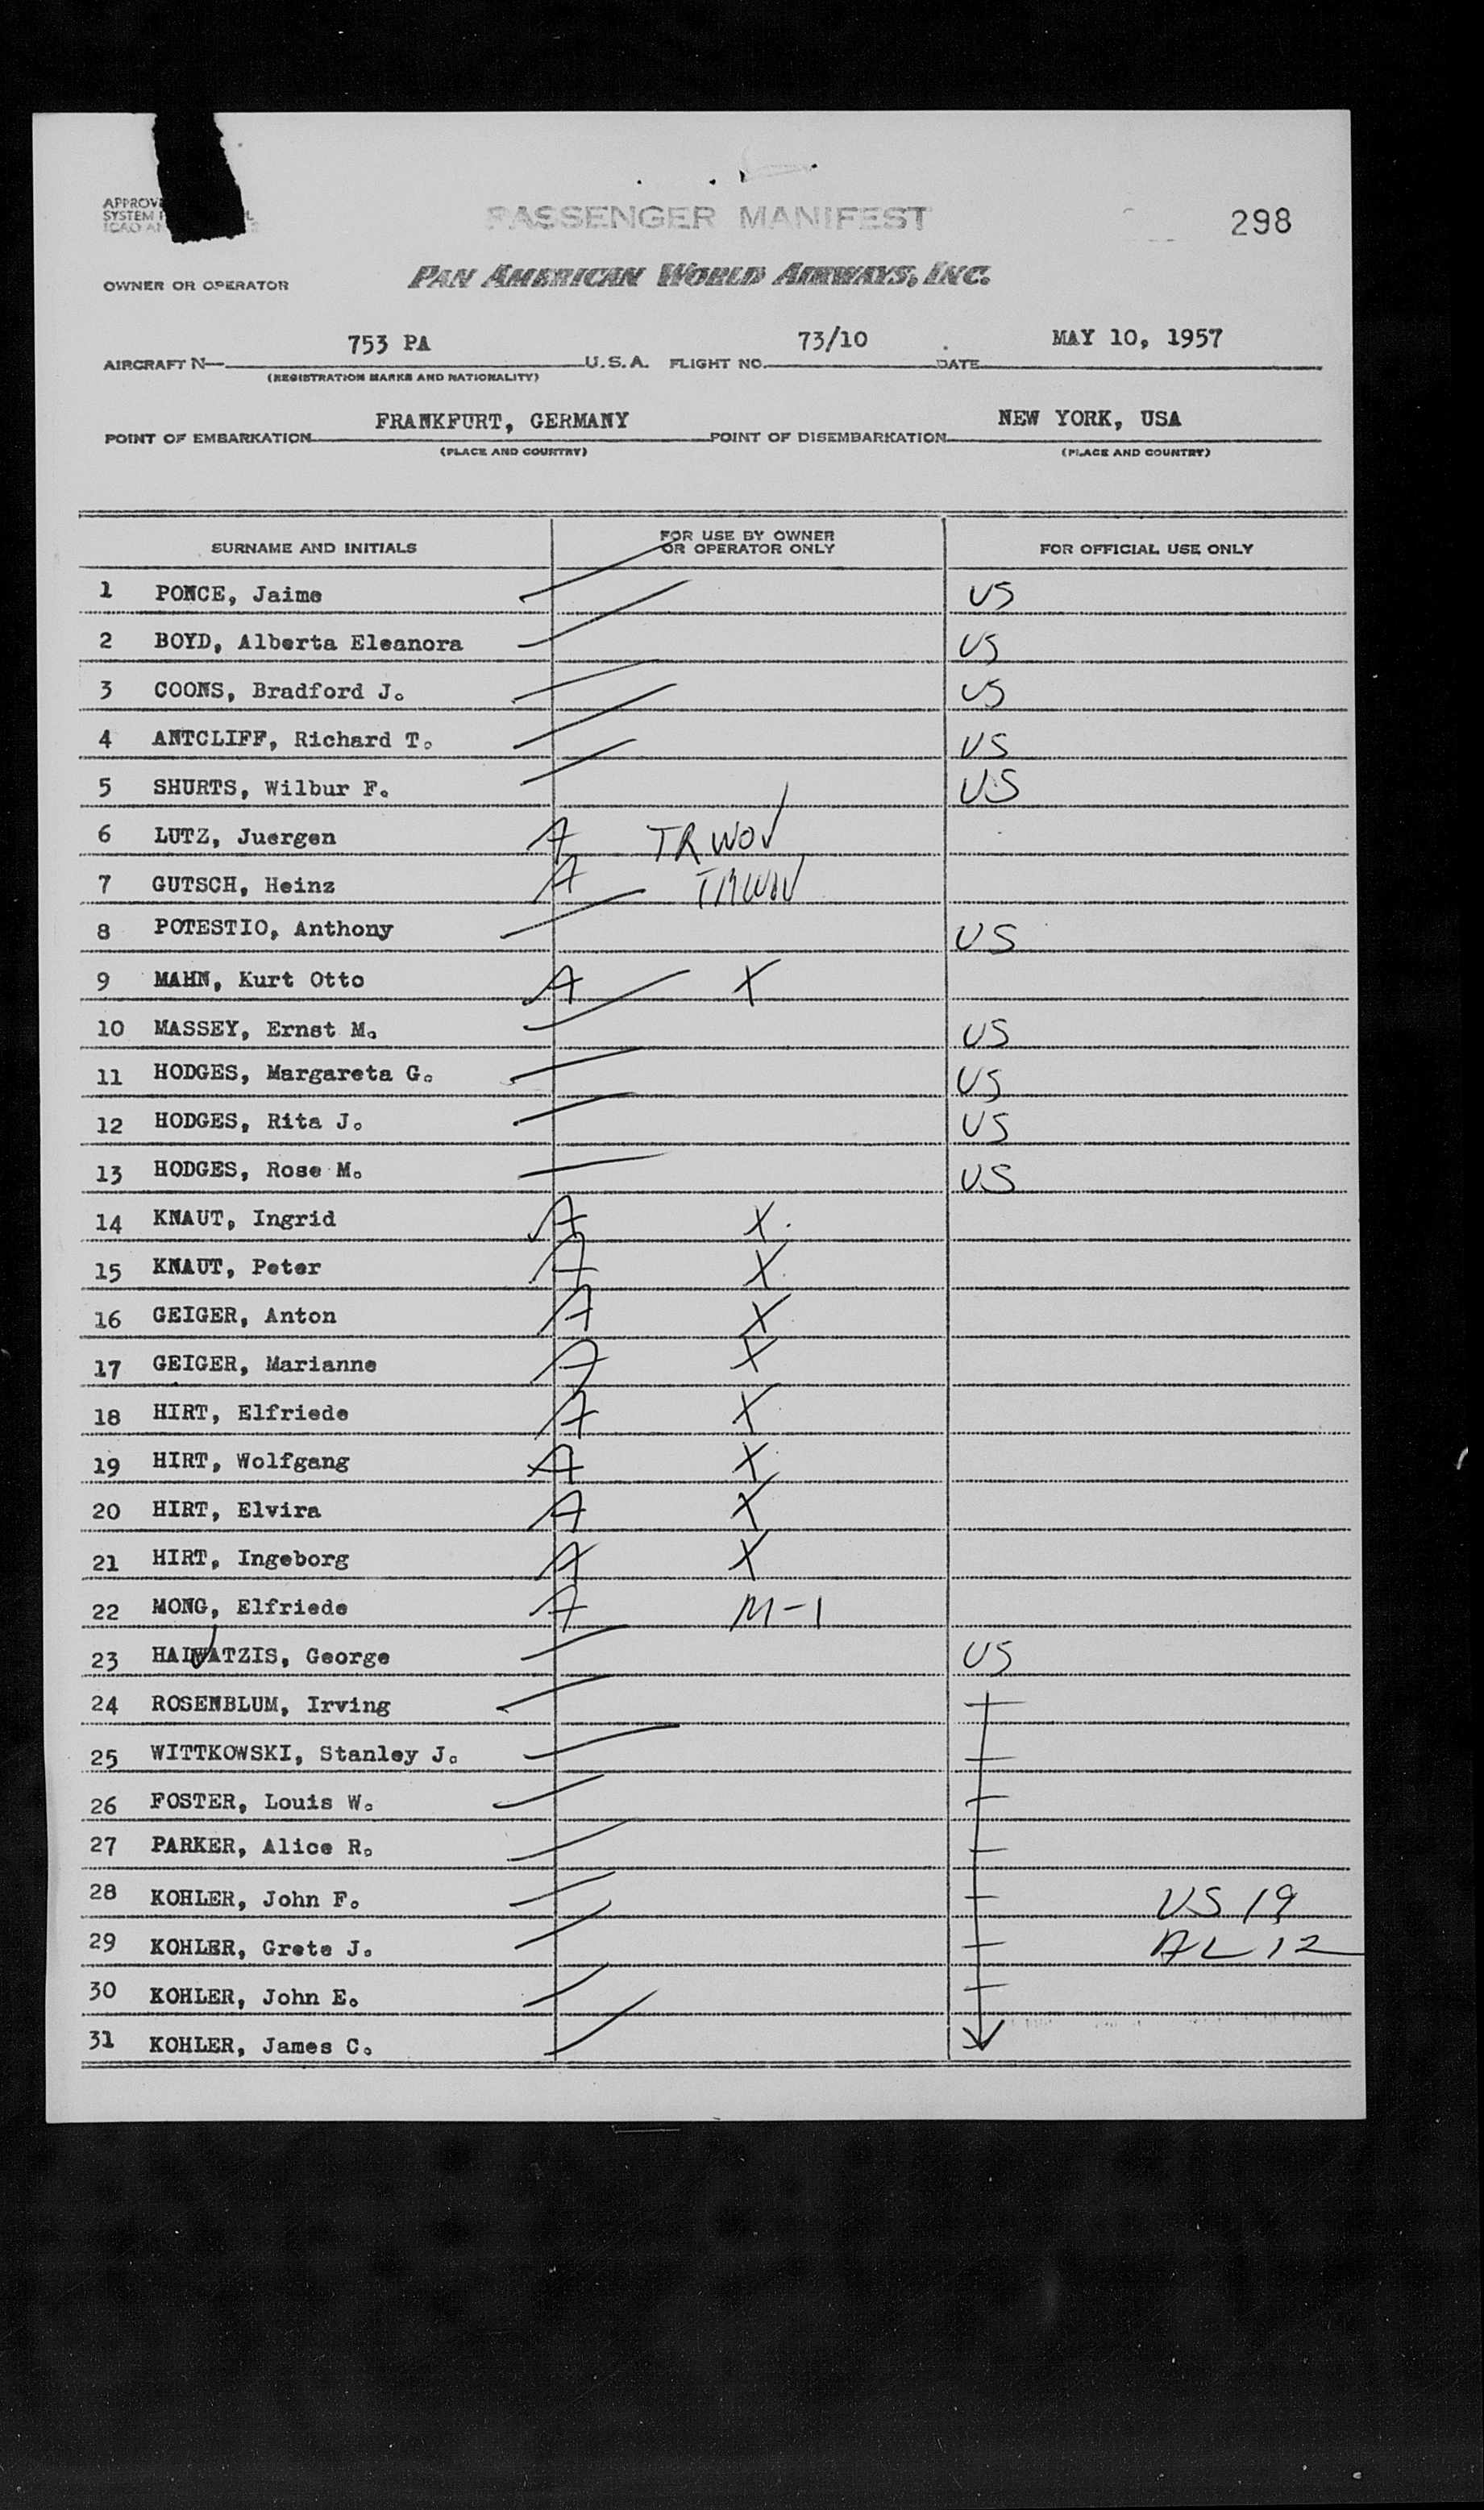 PASSENGER MANIFEST
298
APPROV
SYSTEM
ICAO AN
OWNER OR OPERATOR
PAN AMERICAN WORLD AIRWAYS, INC.
AIRCRAFT N— 753 PA U.S.A. FLIGHT NO. 73/10 DATE MAY 10, 1957
(REGISTRATION MARKS AND NATIONALITY)
POINT OF EMBARKATION FRANKFURT, GERMANY POINT OF DISEMBARKATION NEW YORK, USA
(PLACE AND COUNTRY) (PLACE AND COUNTRY)
SURNAME AND INITIALS FOR USE BY OWNER OR OPERATOR ONLY FOR OFFICIAL USE ONLY
1 PONCE, Jaime US
2 BOYD, Alberta Eleanora US
3 COONS, Bradford J. US
4 ANTCLIFF, Richard T. US
5 SHURTS, Wilbur F. US
6 LUTZ, Juergen A TRWOV
7 GUTSCH, Heinz A TRWOV
8 POTESTIO, Anthony US
9 MAHN, Kurt Otto A X
10 MASSEY, Ernst M. US
11 HODGES, Margareta G. US
12 HODGES, Rita J. US
13 HODGES, Rose M. US
14 KNAUT, Ingrid A X
15 KNAUT, Peter A X
16 GEIGER, Anton A X
17 GEIGER, Marianne A X
18 HIRT, Elfriede A X
19 HIRT, Wolfgang A X
20 HIRT, Elvira A X
21 HIRT, Ingeborg A X
22 MONG, Elfriede A M-1
23 George US
24 ROSENBLUM, Irving
25 WITTKOWSKI, Stanley J.
26 FOSTER, Louis W.
27 PARKER, Alice R.
28 KOHLER, John F. US 19
29 KOHLER, Grete J. AL 12
30 KOHLER, John E.
31 KOHLER, James C.